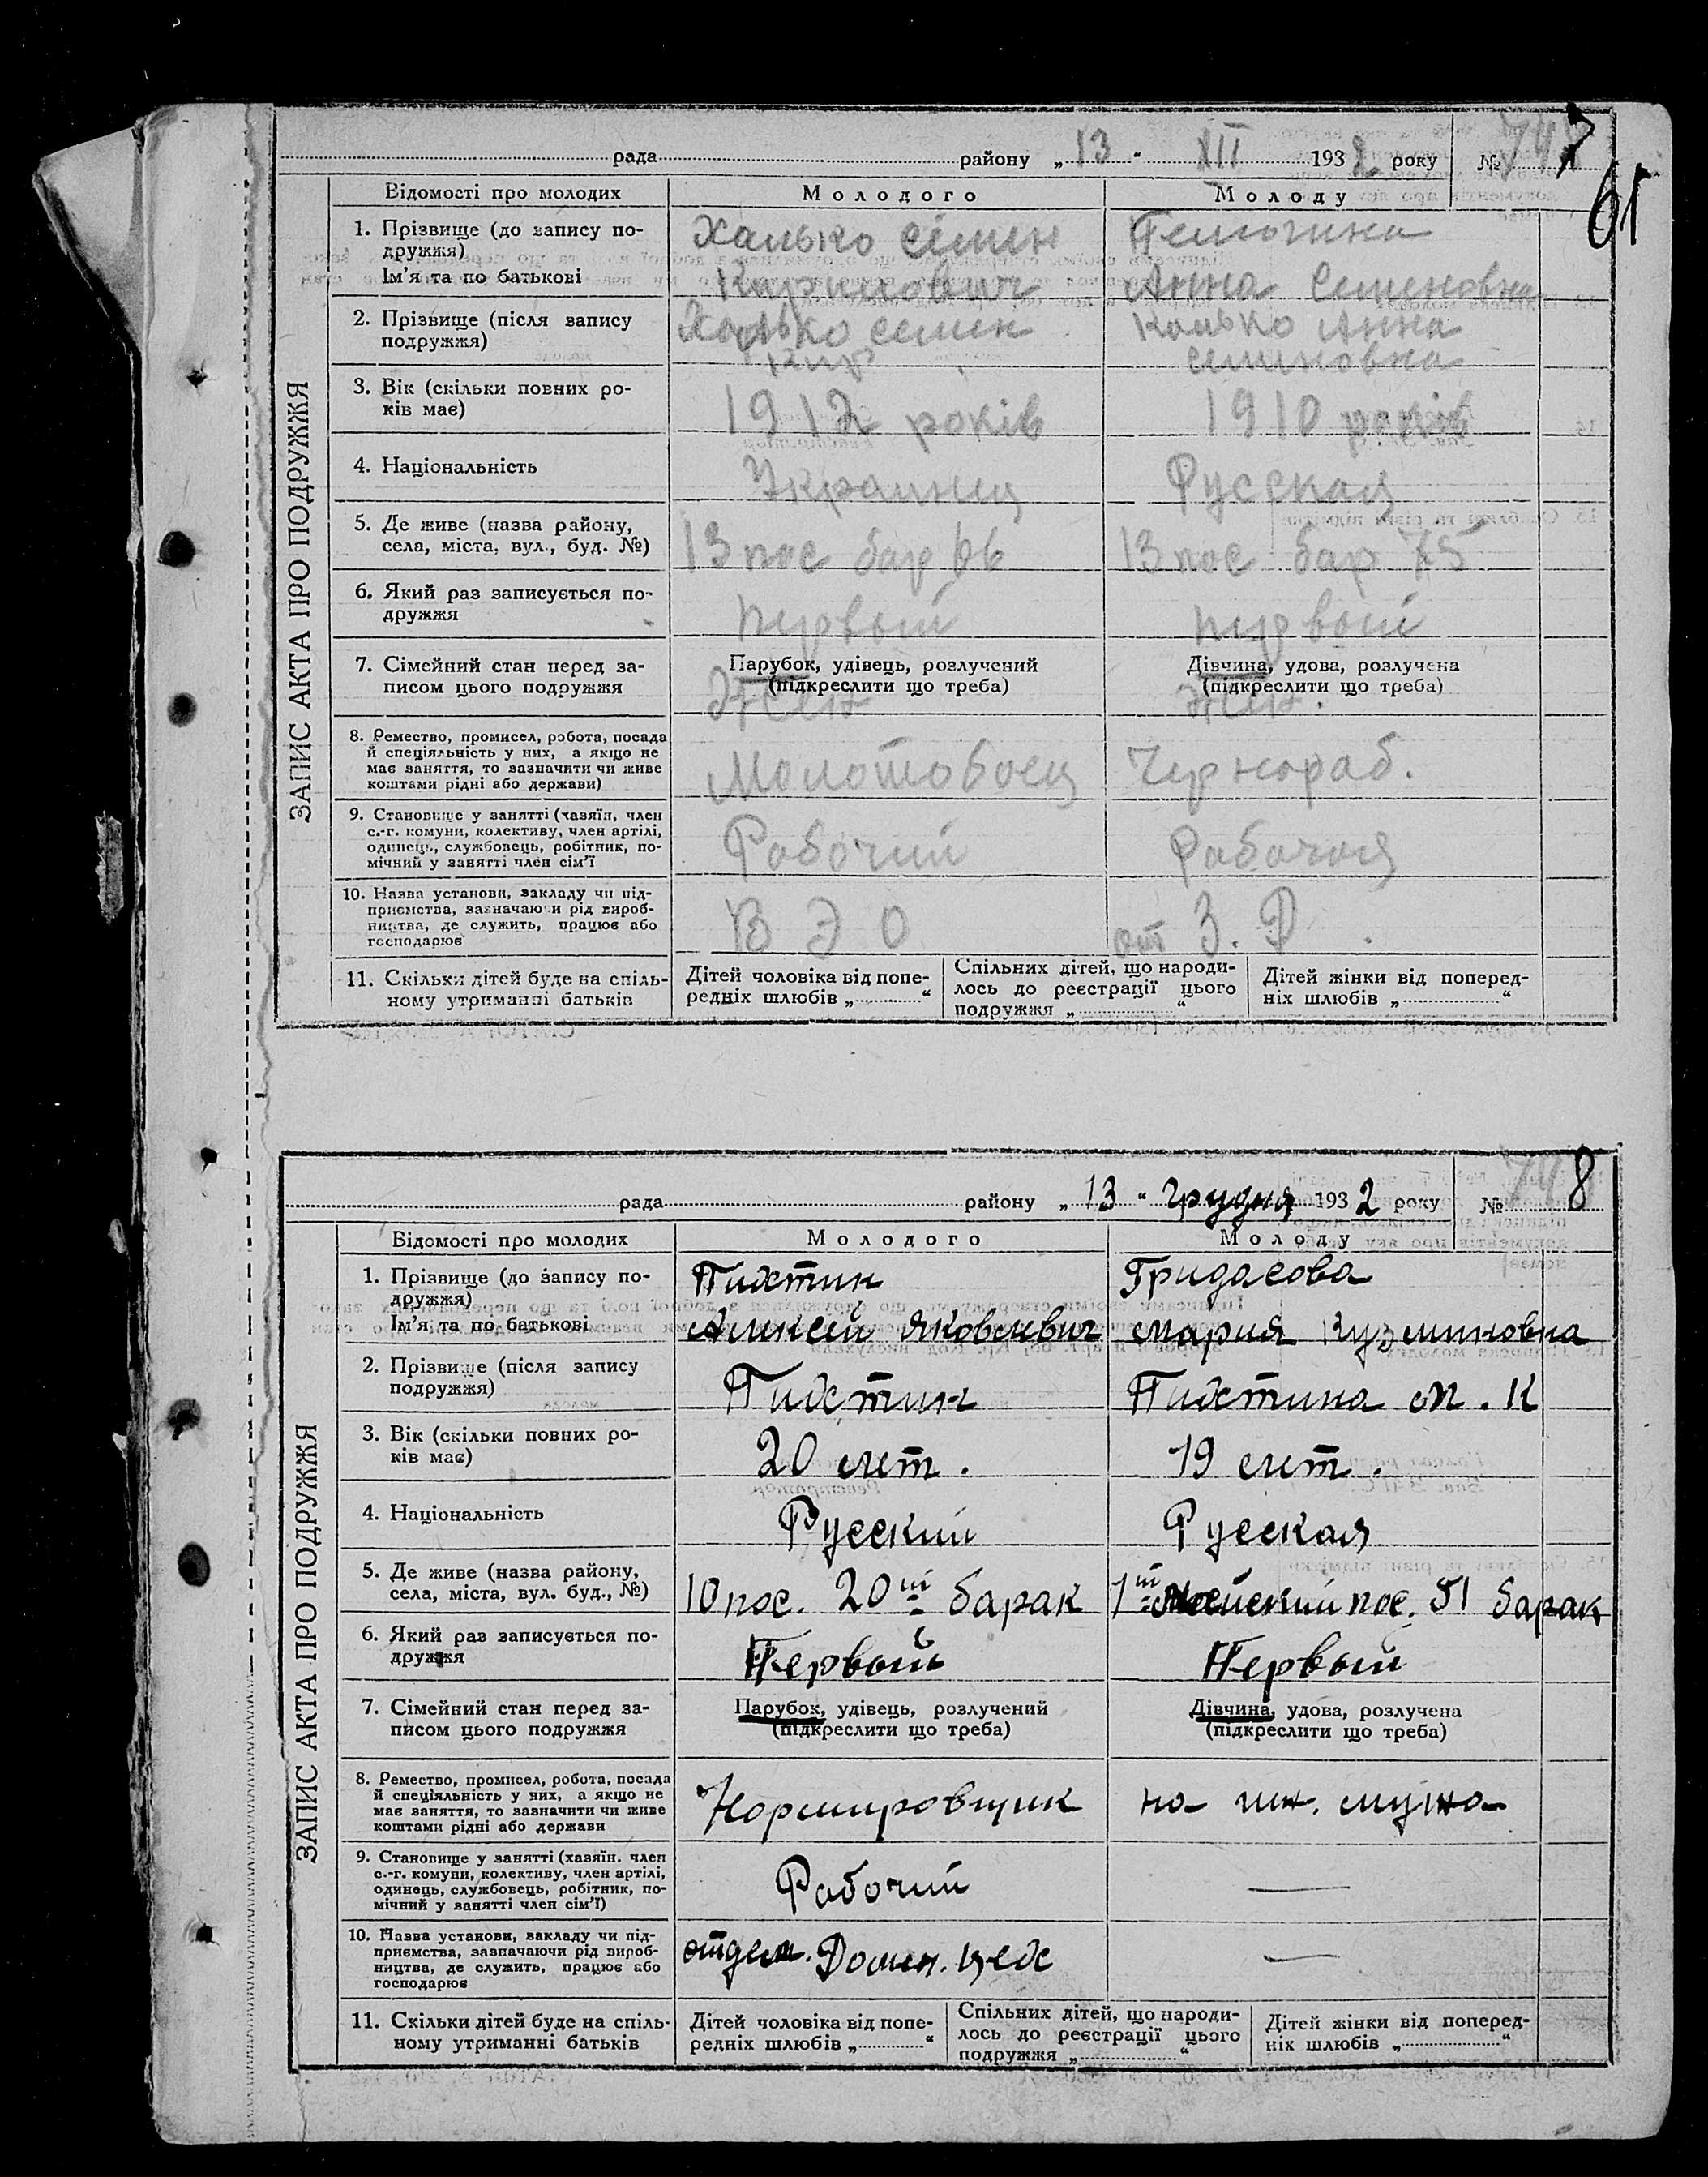 рада района „13“ XII 1932 року № 747
61
ЗАПИС АКТА ПРО ПОДРУЖЖЯ
Відомості про молодих
Молодого
Молоду
1. Прізвище (до запису по-
дружжя)
Ім'я та по батькові
Халько Семен
Кирилович
Анна Семеновна
2. Прізвище (після запису
подружжя)
Халько Семен
Кир
Халько Анна
Семеновна
3. Вік (скільки повних ро-
ків має)
1912 років
1910 років
4. Національність
Украинец
Русская
5. Де живе (назва району,
села, міста, вул., буд. №)
13 пос бар 66
13 пос бар 75
6. Який раз записується по-
дружжя
первый
первый
7. Сімейний стан перед за-
писом цього подружжя
Парубок, удівець, розлучений
(підкреслити що треба)
Дівчина, удова, розлучена
(підкреслити що треба)
8. Ремество, промисел, робота, посада
й спеціяльність у них, а якщо не
має заняття, то зазначити чи живе
коштами рідні або держави)
Молотобоец
Чернораб.
9. Становище у занятті (хазяїн, член
с.-г. комуни, колективу, член артілі,
одинець, службовець, робітник, по-
мічний у занятті член сім'ї
Рабочий
Рабочая
10. Назва установи, закладу чи під-
приємства, зазначаючи рід вироб-
ництва, де служить, працює або
господарює
В Э О
от З. Д.
11. Скільки дітей буде на спіль-
ному утриманні батьків
Дітей чоловіка від попе-
редніх шлюбів „ “
Спільних дітей, що народи-
лось до реєстрації цього
подружжя „ “
Дітей жінки від поперед-
ніх шлюбів „ “
рада району „13“ грудня 1932 року № 748
ЗАПИС АКТА ПРО ПОДРУЖЖЯ
Відомості про молодих
Молодого
Молоду
1. Прізвище (до запису по-
дружжя)
Ім'я та по батькові
Пихтин
Алексей Яковлевич
Гридасова
Мария Кузминовна
2. Прізвище (після запису
подружжя)
Пихтин
Пихтина М. К
3. Вік (скільки повних ро-
ків має)
20 лет.
19 лет.
4. Національність
Русский
Русская
5. Де живе (назва району,
села, міста, вул. буд., №)
10 пос. 20й барак
1й пос. 51 барак
6. Який раз записується по-
дружжя
Первый
Первый
7. Сімейний стан перед за-
писом цього подружжя
Парубок, удівець, розлучений
(підкреслити що треба)
Дівчина, удова, розлучена
(підкреслити що треба)
8. Ремество, промисел, робота, посада
й спеціяльність у них, а якщо не
має заняття, то зазначити чи живе
коштами рідні або держави
Нормировщик
на иж. мужа
9. Становище у занятті (хазяїн. член
с.-г. комуни, колективу, член артілі,
одинець, службовець, робітник, по-
мічний у занятті член сім'ї)
Рабочий
—
10. Назва установи, закладу чи під-
приємства, зазначаючи рід вироб-
ництва, де служить, працює або
господарює
отдел. Домен. цех
—
11. Скільки дітей буде на спіль-
ному утриманні батьків
Дітей чоловіка від попе-
редніх шлюбів „ “
Спільних дітей, що народи-
лось до реєстрації цього
подружжя „ “
Дітей жінки від поперед-
ніх шлюбів „ “